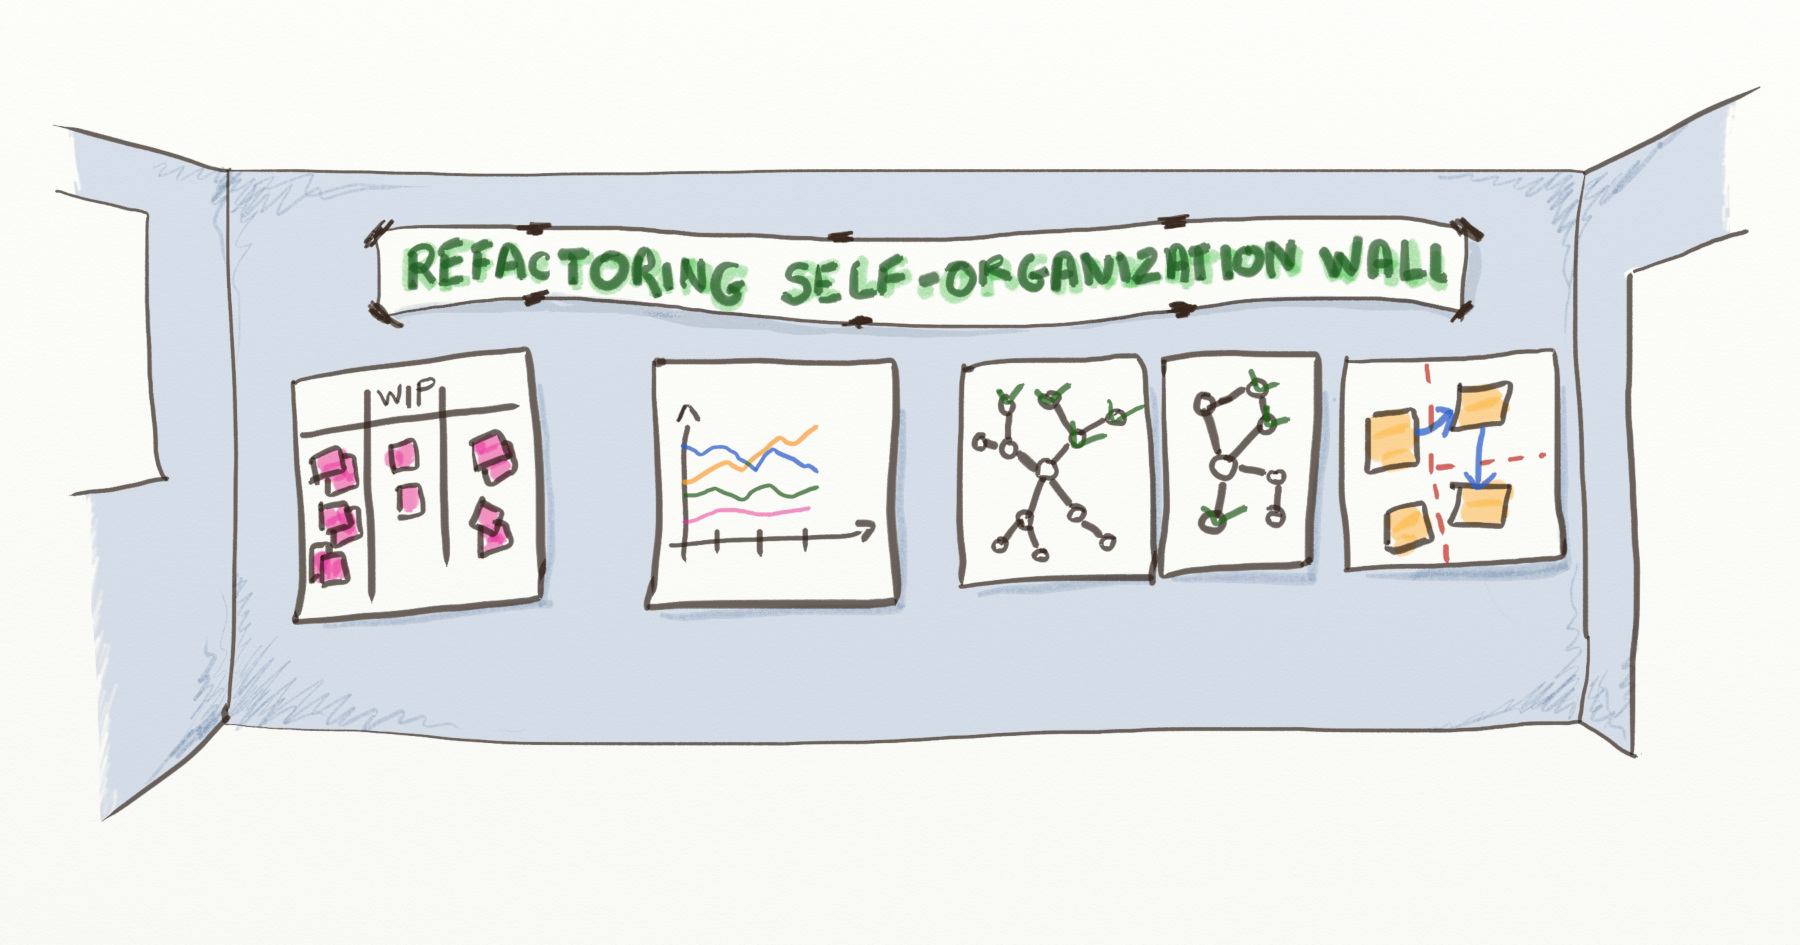 REFACTORING SELF-ORGANIZATION WALL
WIP